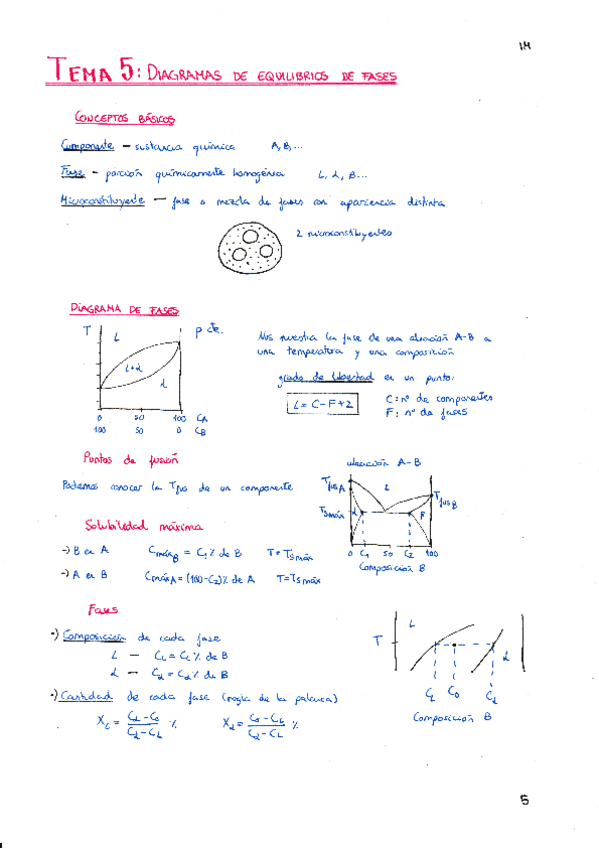 1M
TEMA 5: DIAGRAMAS DE EQUILIBRIOS DE FASES
CONCEPTOS BÁSICOS
Componente — sustancia química A, B,...
Fase - porción químicamente homogénea L, α, β...
Microconstituyente — fase o mezcla de fases con apariencia distinta
2 microconstituyentes
DIAGRAMA DE FASES
T L p cte.
L+α
α
0 50 100 CA
100 50 0 CB
Nos muestra la fase de una aleación A-B a
una temperatura y una composición
grado de libertad en un punto:
L = C-F+2
C: nº de componentes
F: nº de fases
Puntos de fusión
Podemos conocer la Tfus de un componente
aleación A-B
TfusA L TfusB
TSmáx α β
0 C1 50 C2 100
Composición B
Solubilidad máxima
→) B en A CmáxB = C1 % de B T=TSmáx
→) A en B CmáxA = (100-C2)% de A T=TSmáx
Fases
•) Composición de cada fase
L — CL = CL % de B
α — Cα = Cα % de B
•) Cantidad de cada fase (regla de la palanca)
XL = Cα-C0 / Cα-CL % Xα = C0-CL / Cα-CL %
L
T
α
CL C0 Cα
Composición B
5